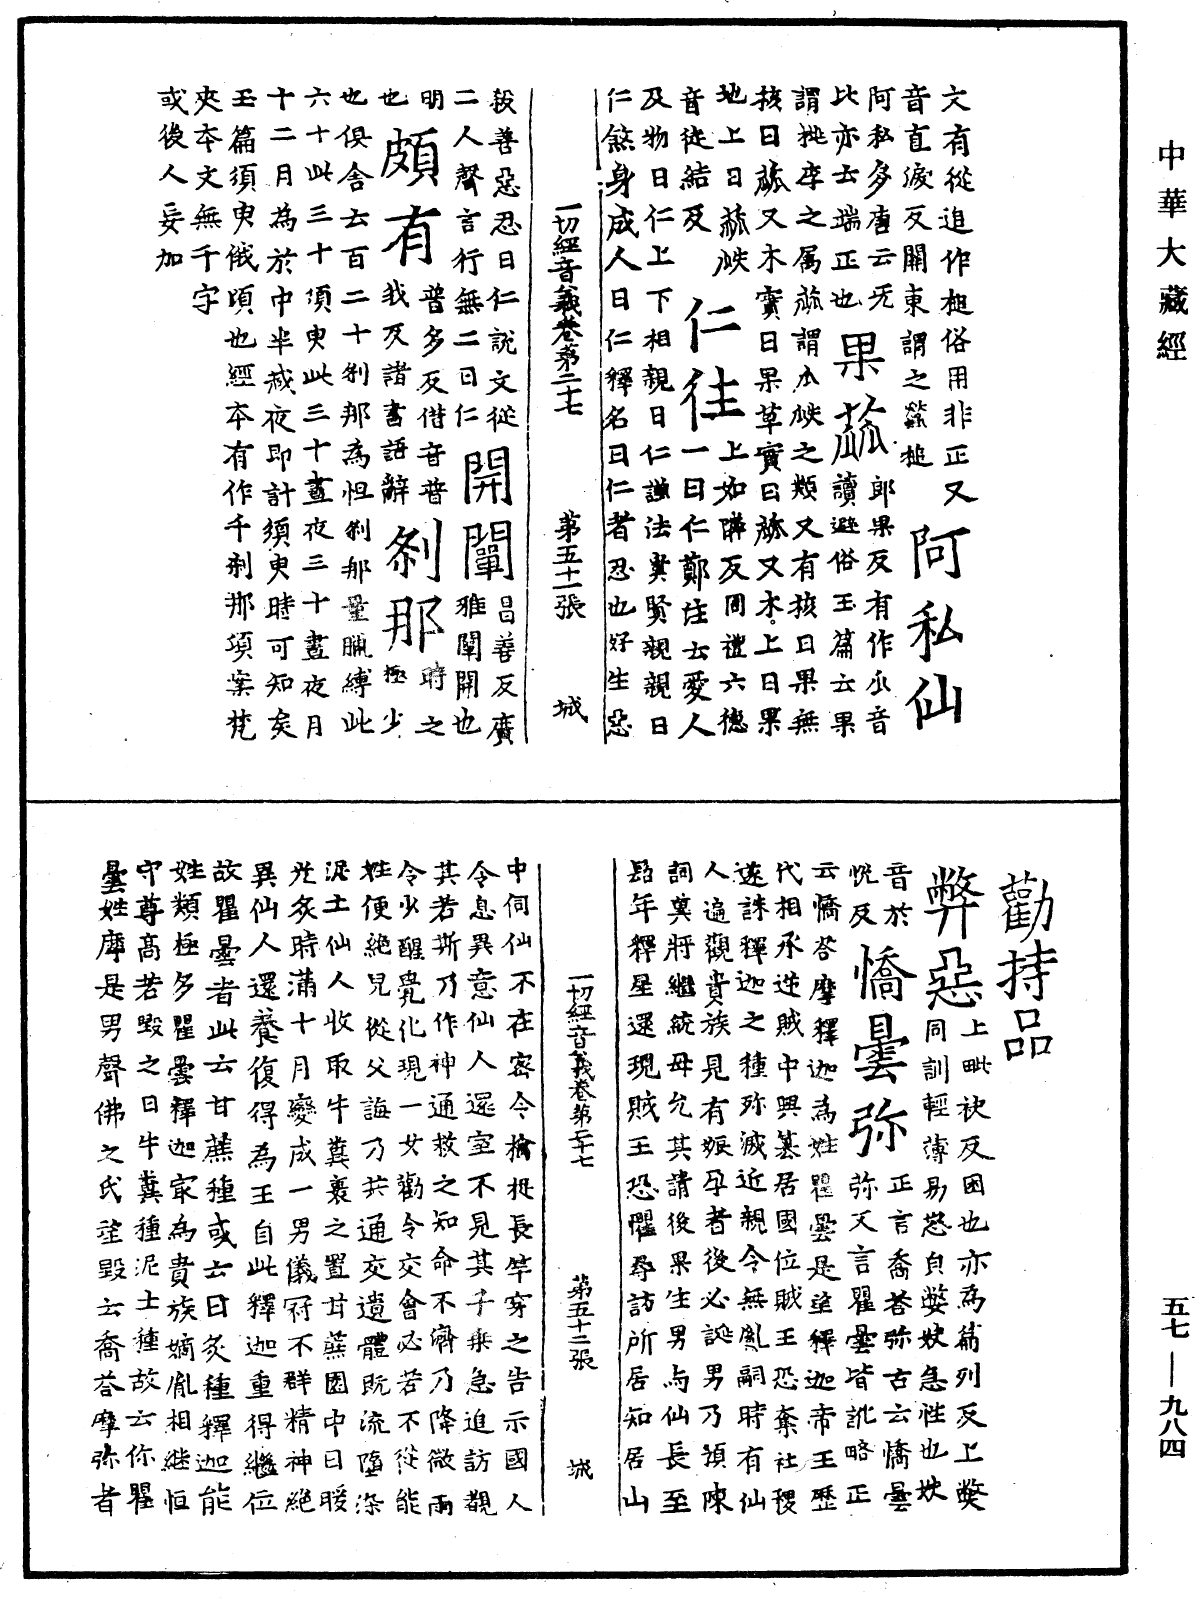 中華大藏經
文有從追作槌俗用非正又 阿私仙
音直淚反關東謂之槌
阿私多唐云无
比亦云端正也 果蓏 郎果反有作小音
讀避俗玉篇云果
謂桃李之属蓏謂瓜㼎之類又有核曰果無
核曰蓏又木實曰果草實曰蓏又木上曰果
地上曰蓏㼎
音徒結反 仁往 上如隣反周禮六德
一曰仁鄭注云愛人
及物曰仁上下相親曰仁謙法貴賢親親曰
仁煞身成人曰仁釋名曰仁者忍也好生惡
一切經音義卷第二十七 第五十一張 城
殺善惡忍曰仁說文從
二人聲言行無二曰仁 開闡 昌善反廣
雅闡開也
明也 頗有 普多反借音普
我反諸書語辭 刹那 時之
極少
也俱舍云百二十刹那為怛刹那量臘縛此
六十此三十須臾此三十晝夜三十晝夜月
十二月為於中半减夜即計須臾時可知矣
玉篇須臾俄頃也經本有作千刹那項案梵
夾本文無千字
或後人妄加
勸持品
弊惡 上毗袂反因也亦為 列反上獘
同訓輕薄易怒自獘妷急性也妷
音於
悅反 憍曇弥 正言喬荅弥古云憍曇
弥又言瞿曇皆訛略正
云憍荅摩釋迦為姓瞿曇是望釋迦帝王歷
代相承逆賊中興篡居國位賊王恐奪社稷
遂誅釋迦之種殄滅近親令無胤嗣時有仙
人遍觀貴族見有娠孕者後必誕男乃頊陳
詞冀將繼統母允其請後果生男与仙長至
齠年釋星還現賊王恐懼尋訪所居知居山
一切經音義卷第二十七 第五十二張 城
中伺仙不在密令擒捉長竿穿之告示國人
令息異意仙人還室不見其子乘急追訪覩
其若斯乃作神通救之知命不濟乃降微雨
令少醒覺化現一女勸令交會必若不從能
姓便絕兒從父誨乃共通交遺體既流墮染
泥土仙人收取牛糞裹之置甘蔗園中日暖
光炙時滿十月變成一男儀冠不群精神絕
異仙人還養復得為王自此釋迦重得繼位
故瞿曇者此云甘蔗種或云日炙種釋迦能
姓類極多瞿曇釋迦家為貴族嫡胤相継恒
守尊高若毀之曰牛糞種泥土種故云你瞿
曇姓摩是男聲佛之氏望毀云喬荅摩弥者
五七—九八四